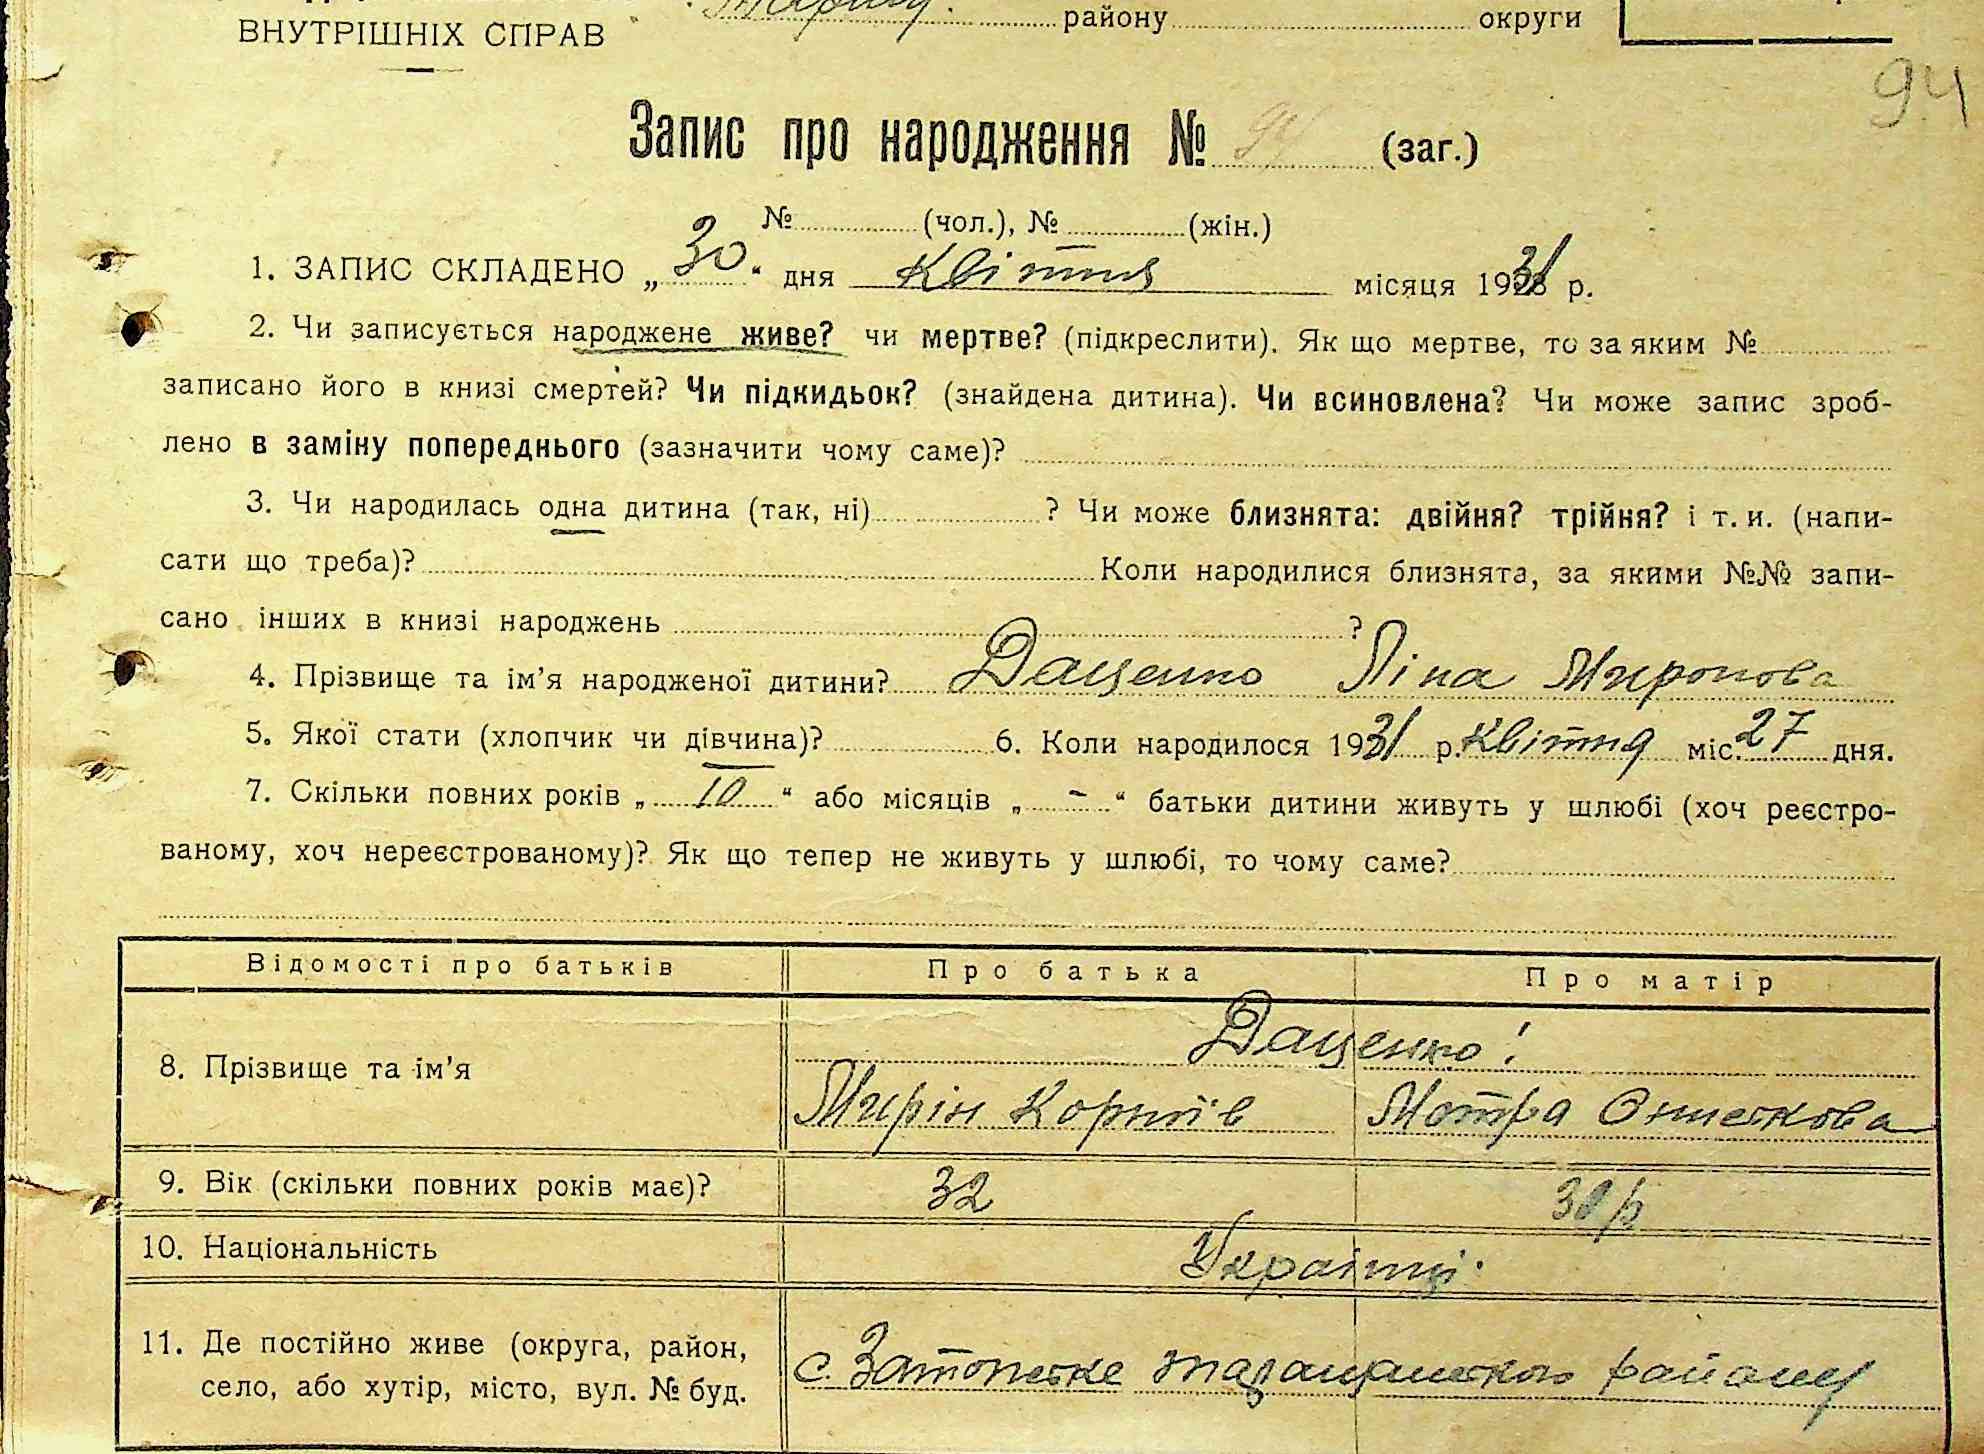 району округи
ВНУТРІШНІХ СПРАВ
94
Запис про народження № 94 (заг.)
№ (чол.), № (жін.)
1. ЗАПИС СКЛАДЕНО „30“ дня Квітня місяця 1931 р.
2. Чи записується народжене живе? чи мертве? (підкреслити). Як що мертве, то за яким №
записано його в книзі смертей? Чи підкидьок? (знайдена дитина). Чи всиновлена? Чи може запис зроб-
лено в заміну попереднього (зазначити чому саме)?
3. Чи народилась одна дитина (так, ні) ? Чи може близнята: двійня? трійня? і т. и. (напи-
сати що треба)? Коли народилися близнята, за якими №№ запи-
сано інших в книзі народжень ?
4. Прізвище та ім’я народженої дитини? Даценко Ліна Миронова
5. Якої стати (хлопчик чи дівчина)? 6. Коли народилося 1931 р. Квітня міс. 27 дня.
7. Скільки повних років „10“ або місяців „-“ батьки дитини живуть у шлюбі (хоч реєстро-
ваному, хоч нереєстрованому)? Як що тепер не живуть у шлюбі, то чому саме?
Відомості про батьків Про батька Про матір
Даценко!
8. Прізвище та ім’я
Мирін Корніїв Мотря Онискова
9. Вік (скільки повних років має)? 32 30 р
10. Національність Українці.
11. Де постійно живе (округа, район,
село, або хутір, місто, вул. № буд.
с. району